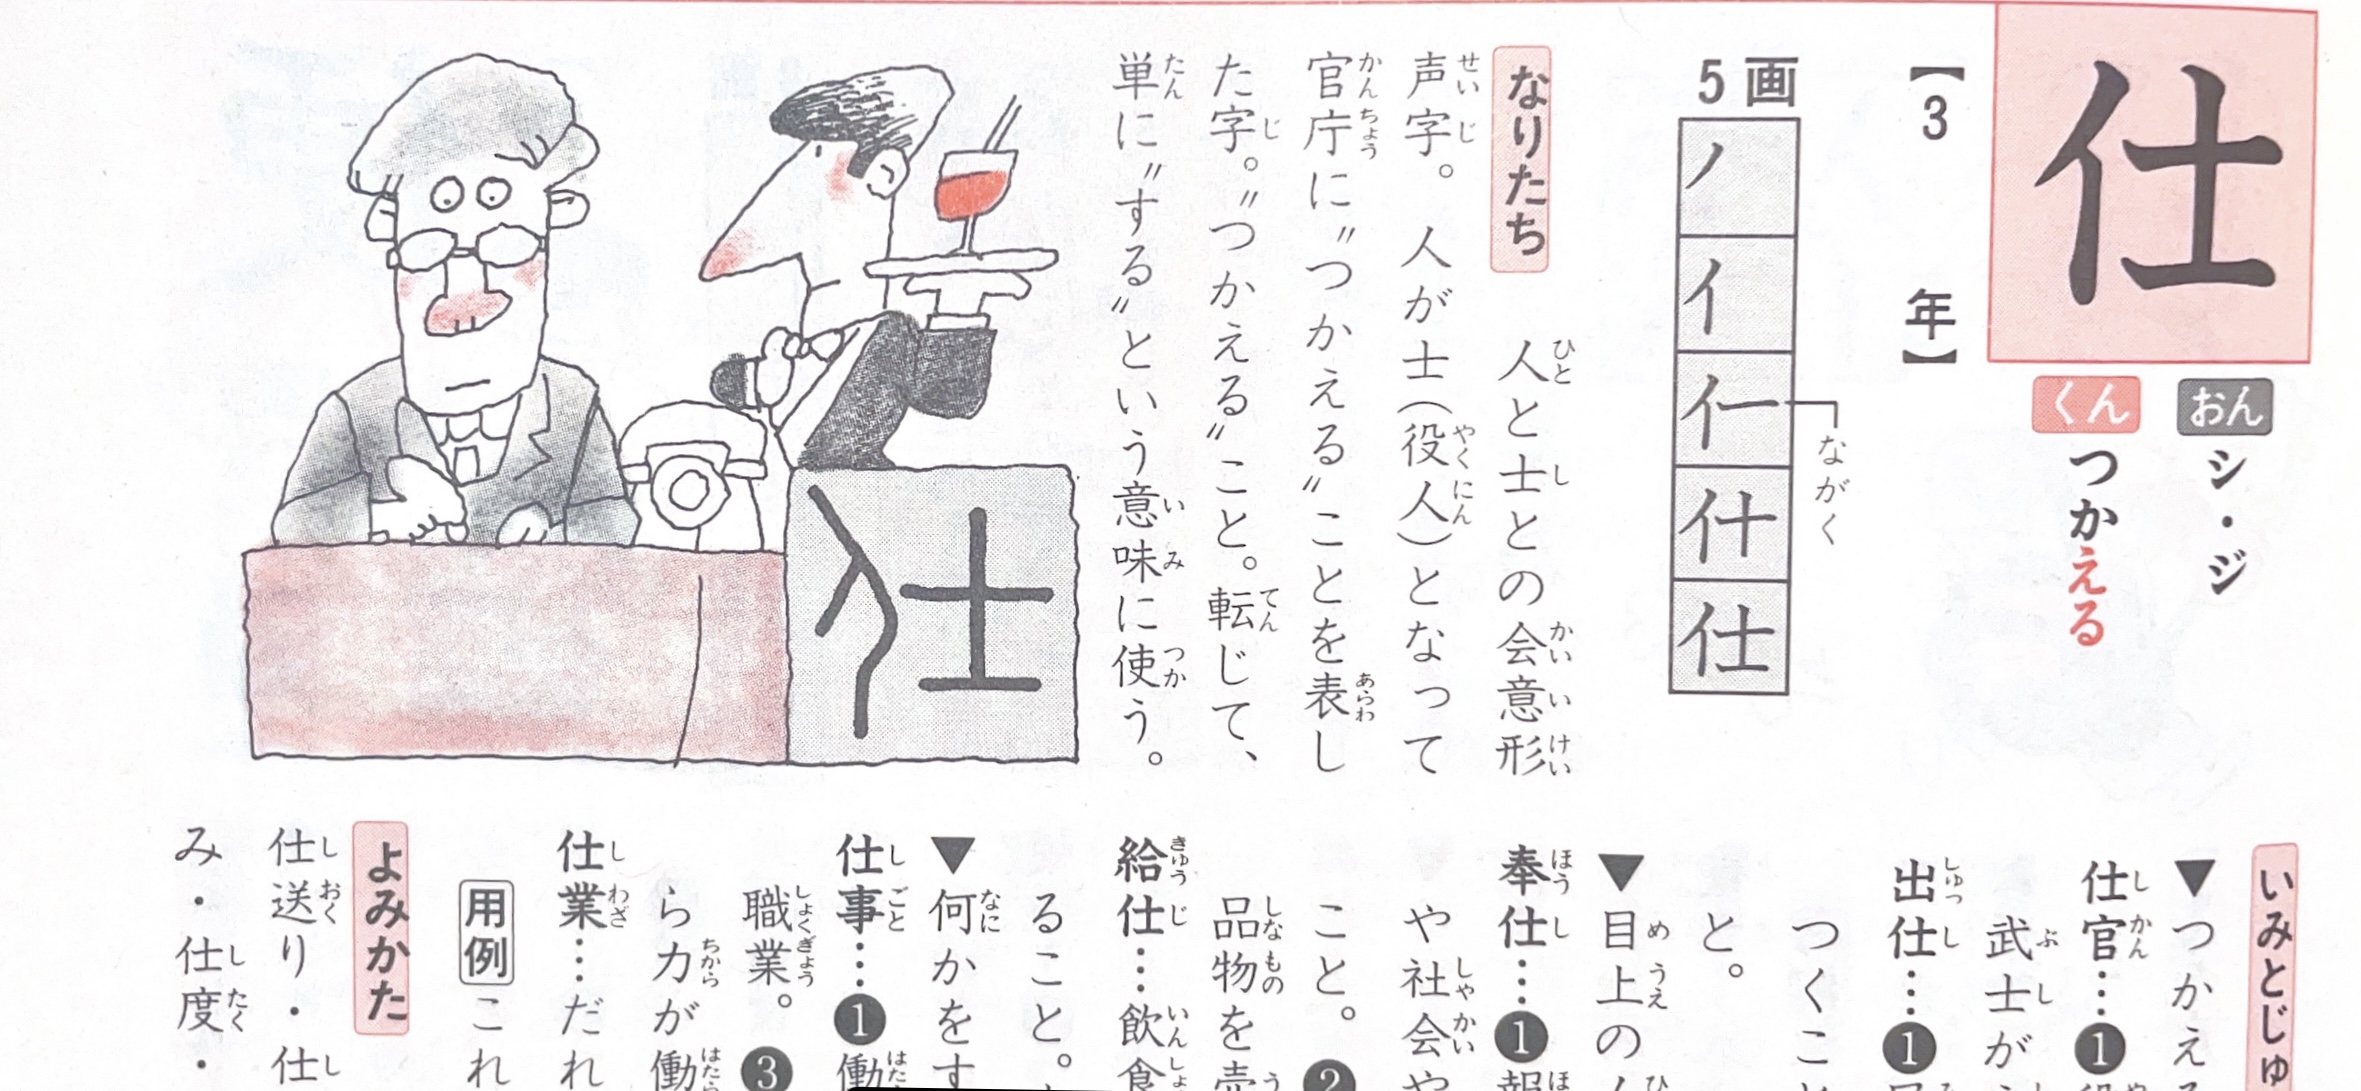 仕
おん シ・ジ
くん つかえる
【3年】
5画
ノ
イ
仁
什
仕
ながく
なりたち
人と士との会意形
声字。人が士(役人)となって
官庁に〝つかえる〟ことを表し
た字。〝つかえる〟こと。転じて、
単に〝する〟という意味に使う。
仕
いみとじゅ
▼つかえ
仕官…❶
武士が
出仕…❶
つくこと
と。
▼目上の
奉仕…❶報
や社会や
こと。❷
品物を売
給仕…飲食
ること。
▼何かをす
仕事…❶働
職業。❸
ら力が働
仕業…だれ
用例 これ
よみかた
仕送り・仕
み・仕度・